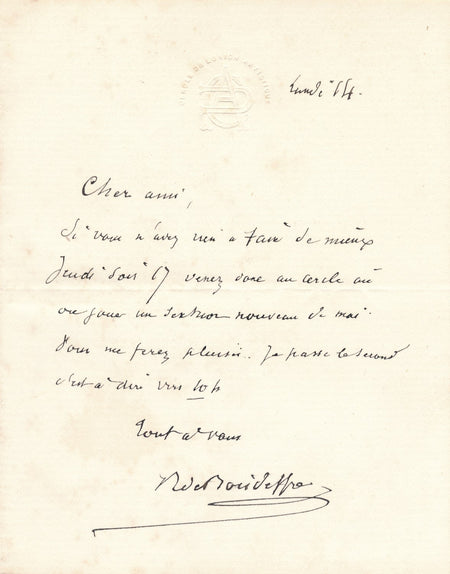 CERCLE DE L'UNION ARTISTIQUE
Lundi 14.
Cher ami,
Si vous n'avez rien a faire de mieux
Jeudi soir 17 venez donc au cercle où
on joue un sextuor nouveau de moi.
Vous me ferez plaisir. Je passe le second
c'est à dire vers 10 h
Tout à vous
R de Boisdeffre